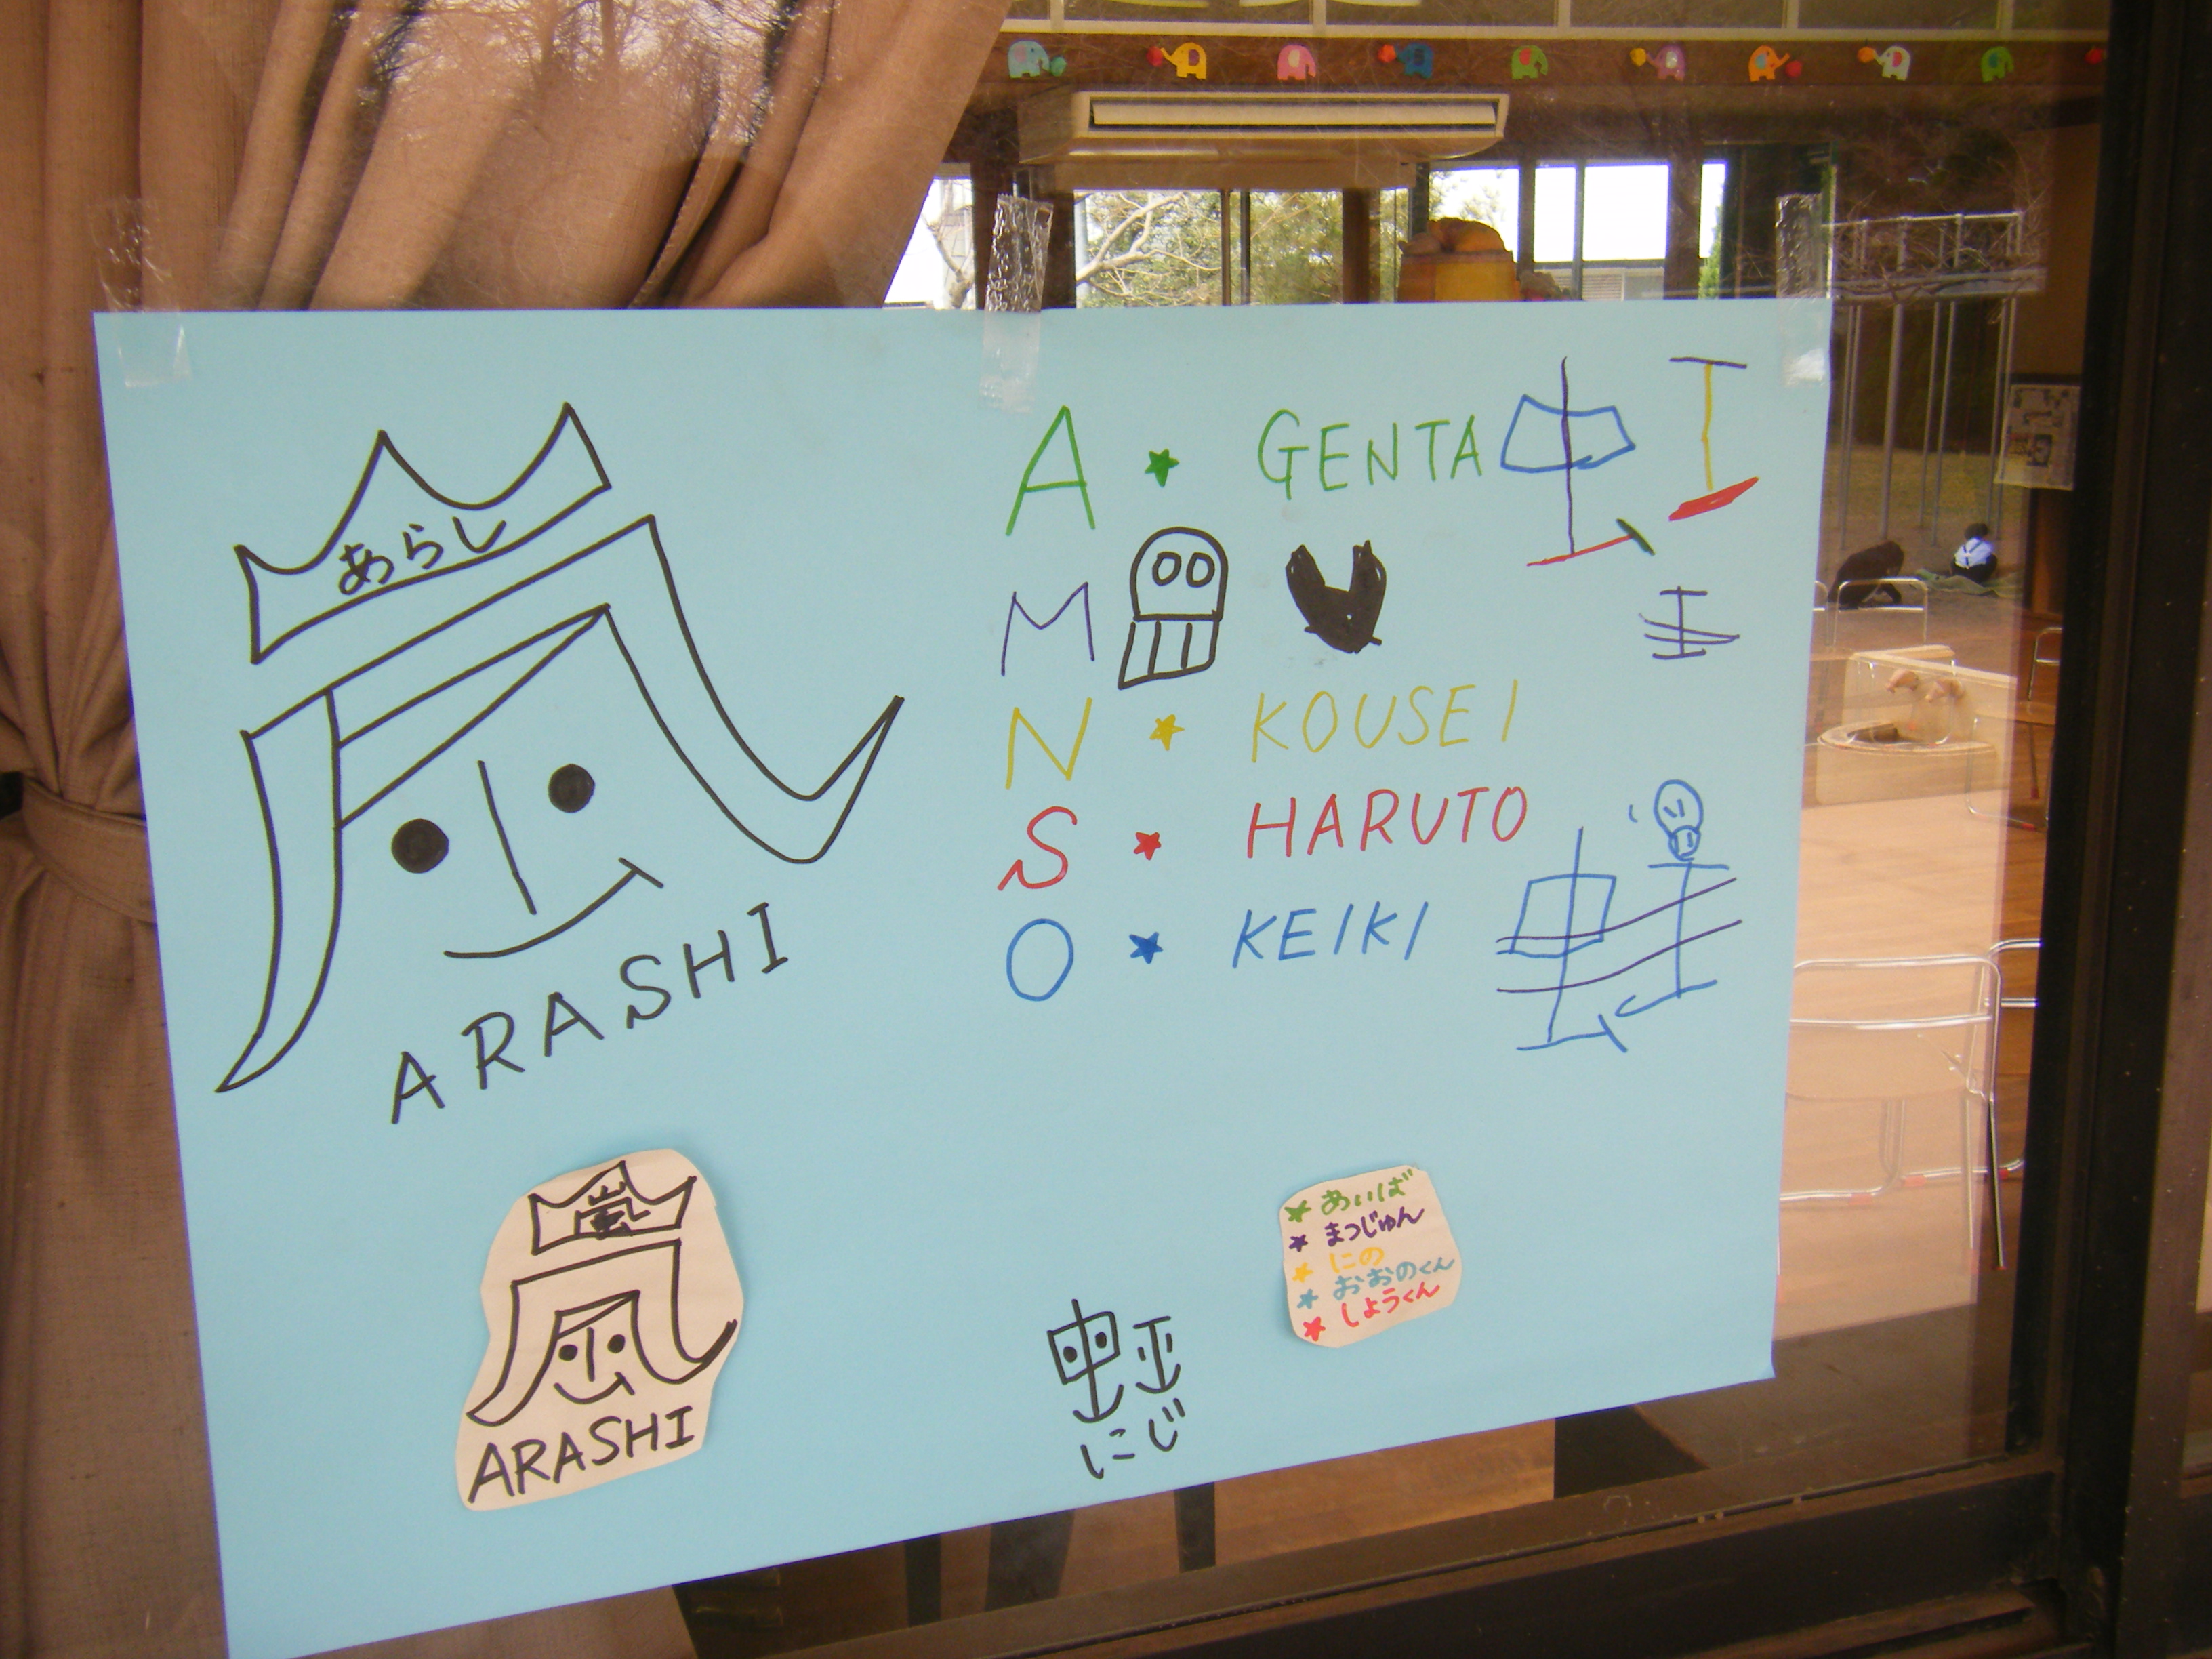 あらし
ARASHI
A ★ GENTA 虹
M
N ★ KOUSEI
S ★ HARUTO
O ★ KEIKI
嵐
ARASHI
虹
にじ
★ あいば
★ まつじゅん
★ にの
★ おおのくん
★ しょうくん